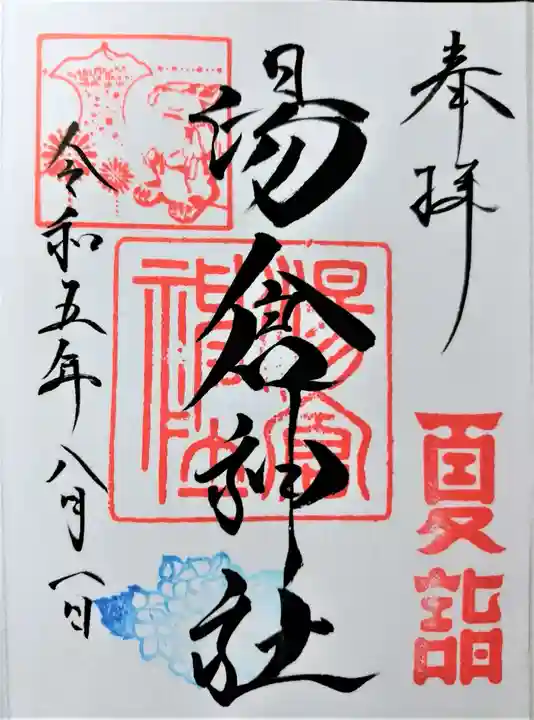 奉拝
夏詣
湯倉神社
湯倉神社
令和五年八月一日